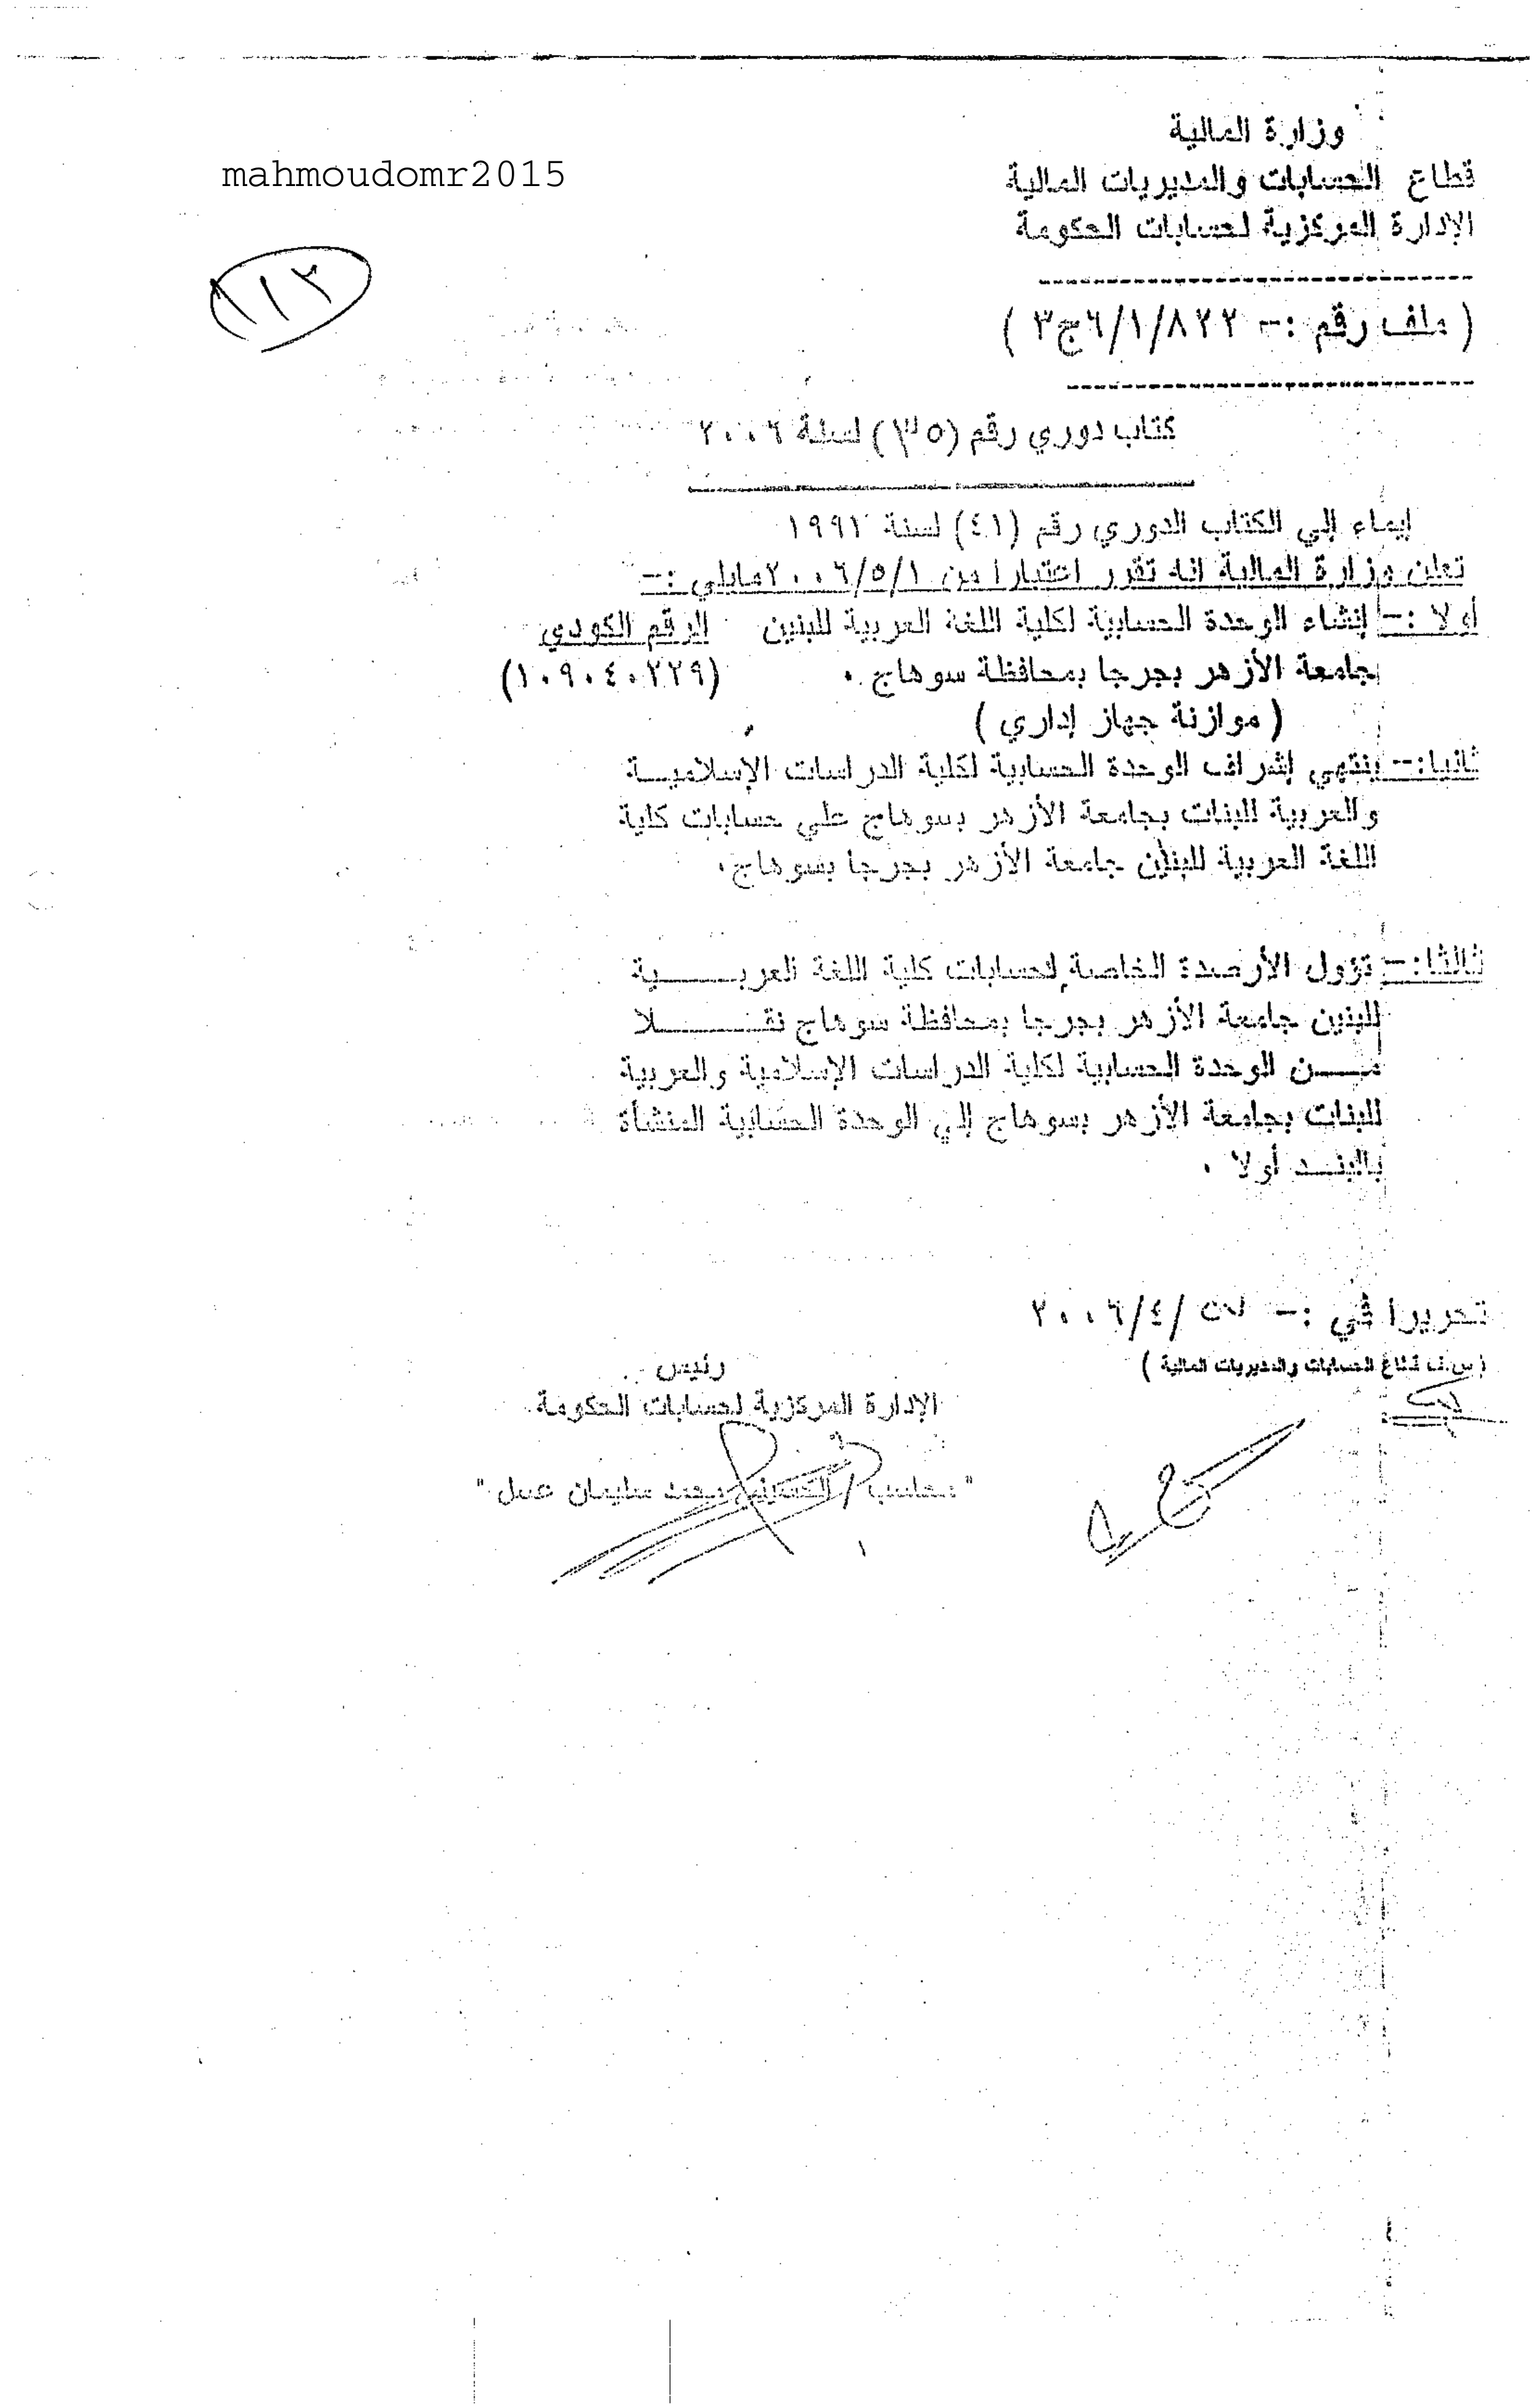 وزارة المالية
mahmoudomr2015
قطاع الحسابات والمديريات المالية
الإدارة المركزية لحسابات الحكومة
١١٢
( ملف رقم :– ٦/١/٨٢٢ج٣ )
كتاب دوري رقم (٣٥) لسنة ٢٠٠٦
إيماء إلي الكتاب الدوري رقم (٤١) لسنة ١٩٩٢
تعلن وزارة المالية انه تقرر اعتبارا من ٢٠٠٦/٥/١ مايلي :–
أولا :– إنشاء الوحدة الحسابية لكلية اللغة العربية للبنين الرقم الكودي
جامعة الأزهر بجرجا بمحافظة سوهاج . (١٠٩٠٤٠٢٢٩)
( موازنة جهاز إداري )
ثانيا:– ينتهي إشراف الوحدة الحسابية لكلية الدراسات الإسلاميـــة
والعربية للبنات بجامعة الأزهر بسوهاج علي حسابات كلية
اللغة العربية للبنين جامعة الأزهر بجرجا بسوهاج.
ثالثا:– تؤول الأرصدة الخاصة لحسابات كلية اللغة العربـــــية
للبنين جامعة الأزهر بجرجا بمحافظة سوهاج نقـــــــلا
مـــن الوحدة الحسابية لكلية الدراسات الإسلامية والعربية
للبنات بجامعة الأزهر بسوهاج إلي الوحدة الحسابية المنشأة
بالبنـــد أولا .
تحريرا في :– /٢٠٠٦/٤
(س.ف قطاع الحسابات والمديريات المالية )
رئيس
الإدارة المركزية لحسابات الحكومة
" محاسب / محمد سليمان عسل "